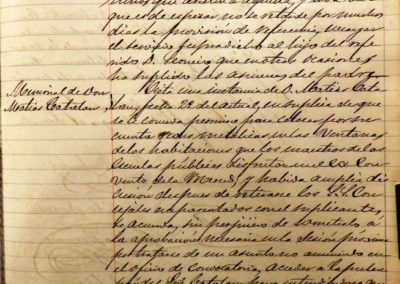 que es de esperar, no se retarde por muchos
dias la provision de referencia, encargar
el servicio fúnebre al hijo del refe
rido D. que en otras ocasiones
ha suplido las ausencias del padre.
Memorial de Don
Matias Catalan
Vista una instancia de D. Matias Cata
lan, fecha 22 del actual, en suplica de que
se le conceda permiso para colocar por su
cuenta metalicas en las Ventanas
de las habitaciones que los maestros de las
Escuelas públicas disfrutan en el Ex Con
vento de la Merced, y habida amplia dis
cusión despues de retirarse los S.S. Con
cejales emparentados con el suplicante,
Se acuerda, sin perjuicio de someterlo á
la aprobacion necesaria en la sesion próxima
por tratarse de un asunto no anunciado en
el oficio de Convocatoria, acceder á la preten
sion del Sr. Catalan